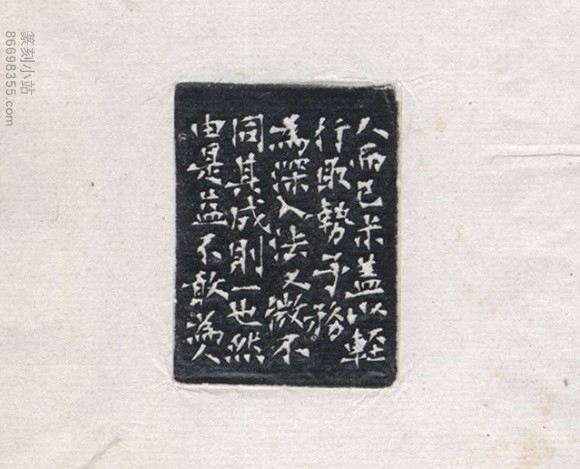 人而已朱盖以輊
行取勢予務
為深入法又微不
同其成則一也然
由是益不敢為人
篆刻小站
86698355.com